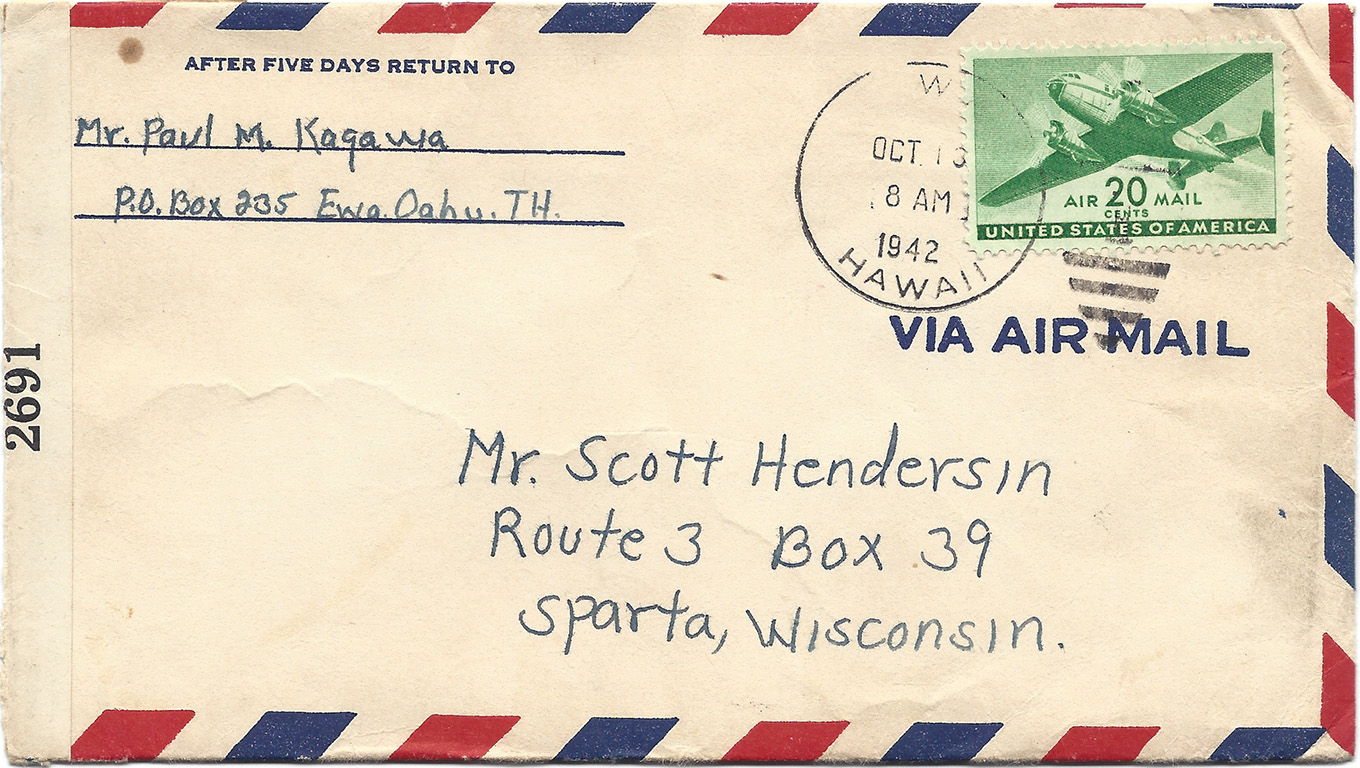 AFTER FIVE DAYS RETURN TO
Mr. Paul M. Kagawa
P.O. Box 235 Ewa. Oahu. T.H.
W
OCT. 13
8 AM
1942
HAWAII
AIR 20 MAIL
CENTS
UNITED STATES OF AMERICA
VIA AIR MAIL
2691
Mr. Scott Hendersin
Route 3 Box 39
Sparta, Wisconsin.